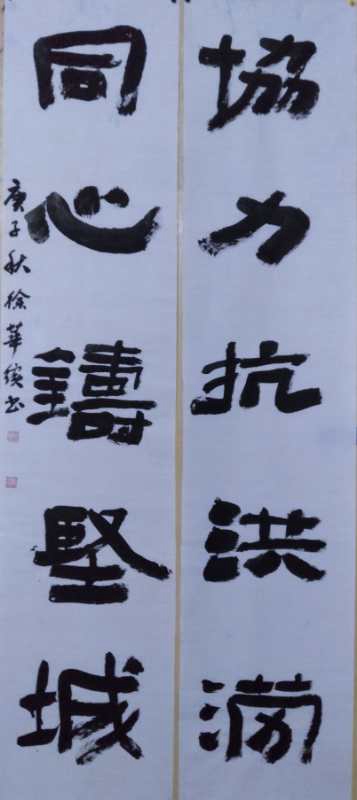 協力抗洪澇
同心鑄堅城
庚子秋徐華書